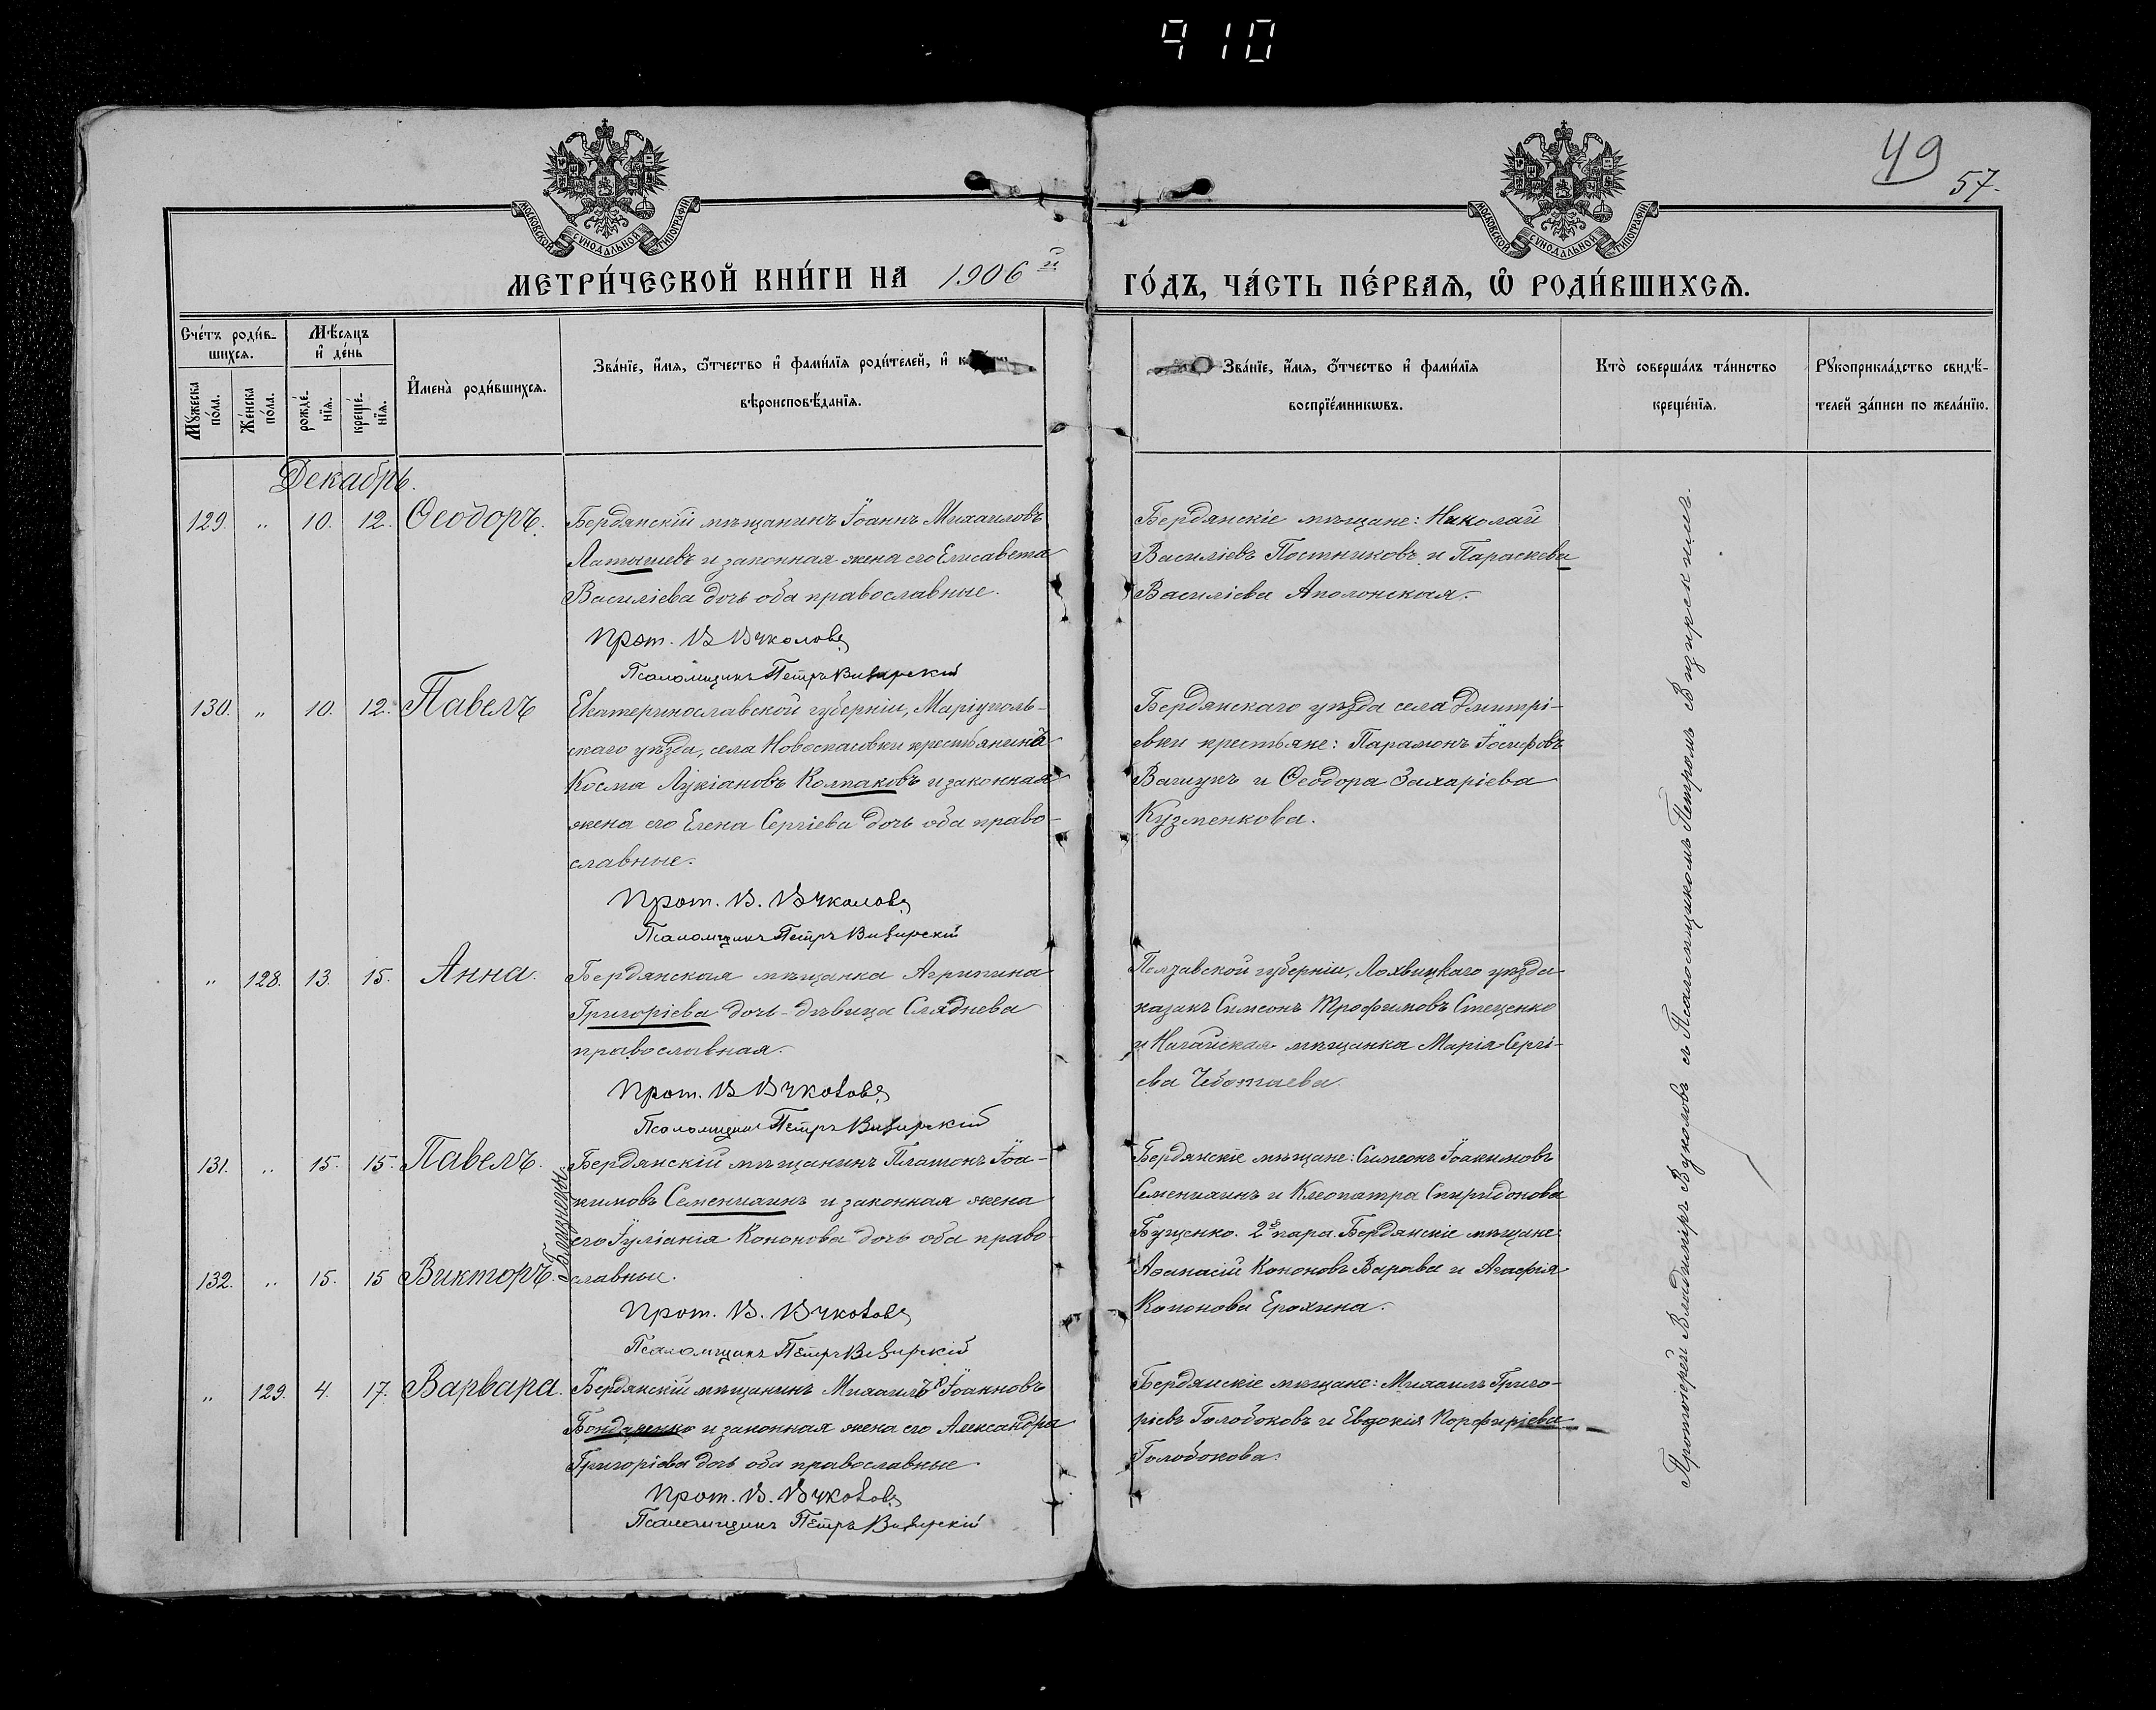 910
49
57.
МОСКОВСКОЙ СѴНОДАЛЬНОЙ ТИПОГРАФІИ
МОСКОВСКОЙ СѴНОДАЛЬНОЙ ТИПОГРАФІИ
МЕТРИ́ЧЕСКОЙ КНИ́ГИ НА 1906й
ГО́ДЪ, ЧА́СТЬ ПЕ́РВАѦ, Ѡ РОДИ́ВШИХСѦ.
Сче́тъ роди́в-
шихсѧ.
Мѣ́сѧцъ
и де́нь
Мꙋ́жеска
по́ла.
Же́нска
по́ла.
рожде́-
нїѧ.
креще́-
нїѧ.
Имена̀ роди́вшихсѧ.
Зва́нїе, и́мѧ, ѻ́тчество и фами́лїѧ роди́телей, и
вѣроисповѣ́данїѧ.
Зва́нїе, и́мѧ, ѻ́тчество и фами́лїѧ
воспрїе́мникѡвъ.
Кто̀ соверша́лъ та́инство
креще́нїѧ.
Рꙋкоприкла́дство свидѣ́-
телей за́писи по жела́нїю.
Декабрь.
129. „ 10. 12. Ѳеодоръ.
Бердянскій мѣщанинъ Іоаннъ Михаиловъ
Латышевъ и законная жена его Елисавета
Василіева дочь оба православные.
Прот. В Вуколовъ
Псаломщикъ Петръ
Бердянскіе мѣщане: Николай
Василіевъ Постниковъ и Параскева
Василіева Аполонская.
130. „ 10. 12. Павелъ
Екатеринославской губерніи, Маріуполь-
скаго уѣзда, села Новоспасовки крестьянинъ
Косма Лукіановъ Колпаковъ и законная
жена его Елена Сергіева дочь оба право-
славные.
Прот. В. Вуколовъ
Псаломщикъ Петръ
Бердянскаго уѣзда села Дмитрі-
евки крестьяне: Парамонъ Іосифовъ
и Ѳеодора Захаріева
Кузменкова.
„ 128. 13. 15. Анна.
Бердянская мѣщанка Агрипина
Григоріева дочь-дѣвица Сляднева
православная.
Прот. В Вуколовъ
Псаломщикъ Петръ
Полтавской губерніи, Лохвицкаго уѣзда
казакъ Симеонъ Трофимовъ Стещенко
и Ногайская мѣщанка Марія Сергі-
ева Чеботаева.
131. „ 15. 15. Павелъ.
Близнецы.
Бердянскій мѣщанинъ Платонъ Іоа-
кимовъ Семенихинъ и законная жена
его Іуліанія Кононова дочь оба право-
132. „ 15. 15 Викторъ.
славные.
Прот. В. Вуколовъ
Псаломщикъ Петръ
Бердянскіе мѣщане: Симеонъ Іоакимовъ
Семенихинъ и Клеопатра Спиридонова
Бущенко. 2я пара. Бердянскіе мѣщане:
Аѳанасій Кононовъ Варава и Агафія
Кононова Ерохина.
„ 129. 4. 17. Варвара.
Бердянскій мѣщанинъ Михаилъ Іоанновъ
Бондаренко и законная жена его Александра
Григоріева дочь оба православные
Прот. В. Вуколовъ
Псаломщикъ Петръ
Бердянскіе мѣщане: Михаилъ Григо-
ріевъ Голобоковъ и Евдокія Порфиріева
Голобокова.
Протоіерей Владиміръ Вуколовъ съ Псаломщикомъ Петромъ